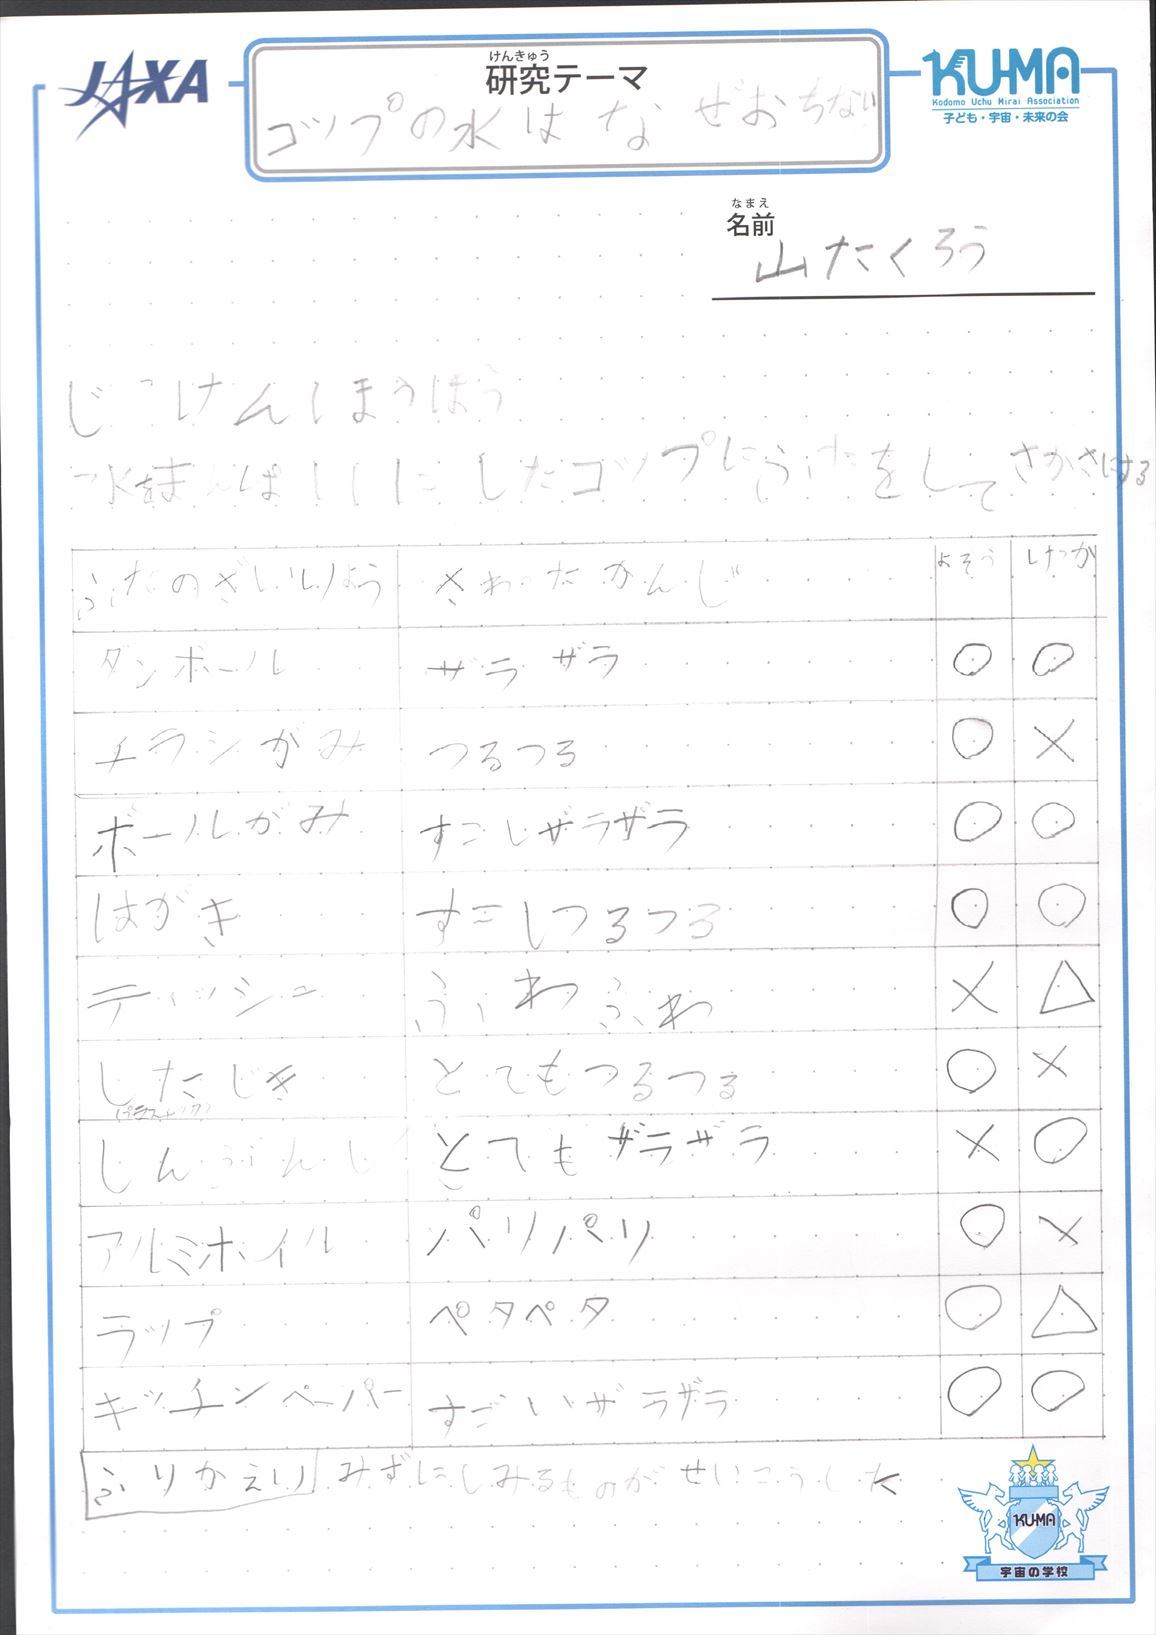 JAXA
けんきゅう
研究テーマ
コップの水はなぜおちない
KU-MA
Kodomo Uchu Mirai Association
子ども・宇宙・未来の会
なまえ
名前
山たくろう
じこけんしまうほう
水をまんぱいにしたコップにふたをしてさかさにする
ふたのざいりょう さわったかんじ よそう けっか
ダンボール ザラザラ ○ ○
チラシがみ つるつる ○ ×
ボールがみ すこしザラザラ ○ ○
はがき すこしつるつる ○ ○
ティッシュ ふわふわ × △
したじき とてもつるつる ○ ×
(プラスチック)
しんぶんし とてもザラザラ × ○
アルミホイル パリパリ ○ ×
ラップ ペタペタ ○ △
キッチンペーパー すごいザラザラ ○ ○
ふりかえり みずにしみるものがせいこうした
KU-MA
宇宙の学校